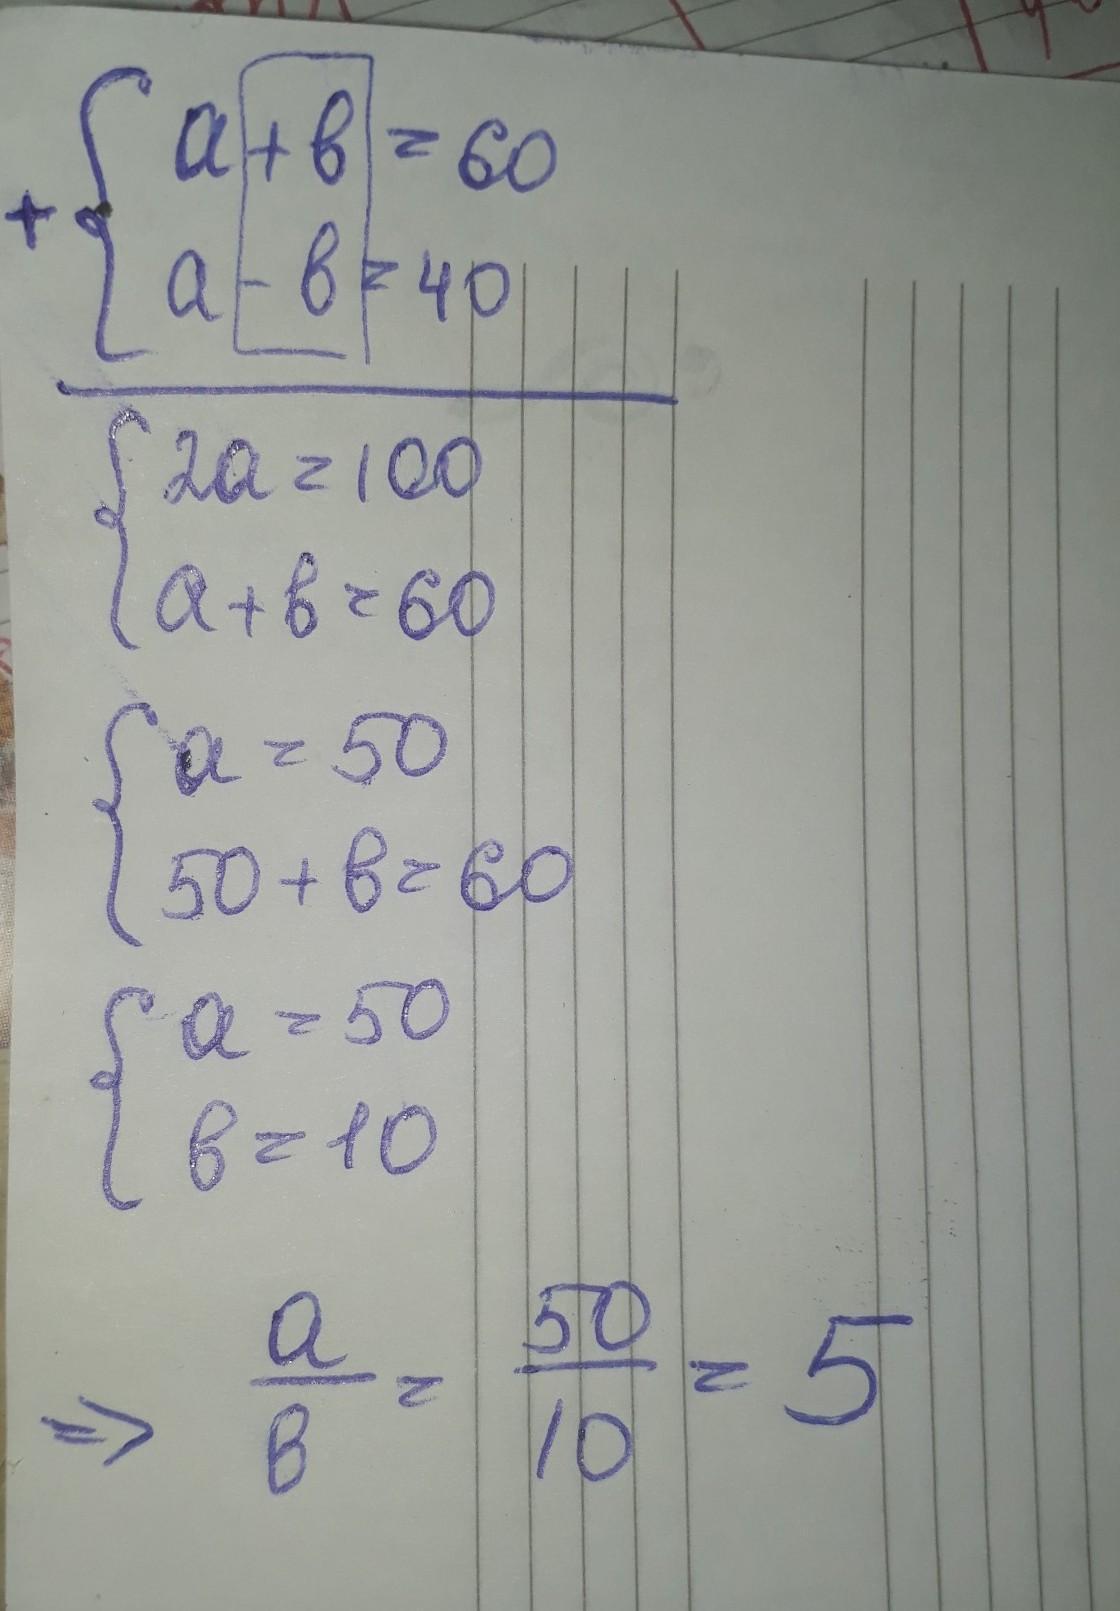 a + b = 60
+
a - b = 40
2a = 100
a + b = 60
a = 50
50 + b = 60
a = 50
b = 10
=> a/b = 50/10 = 5